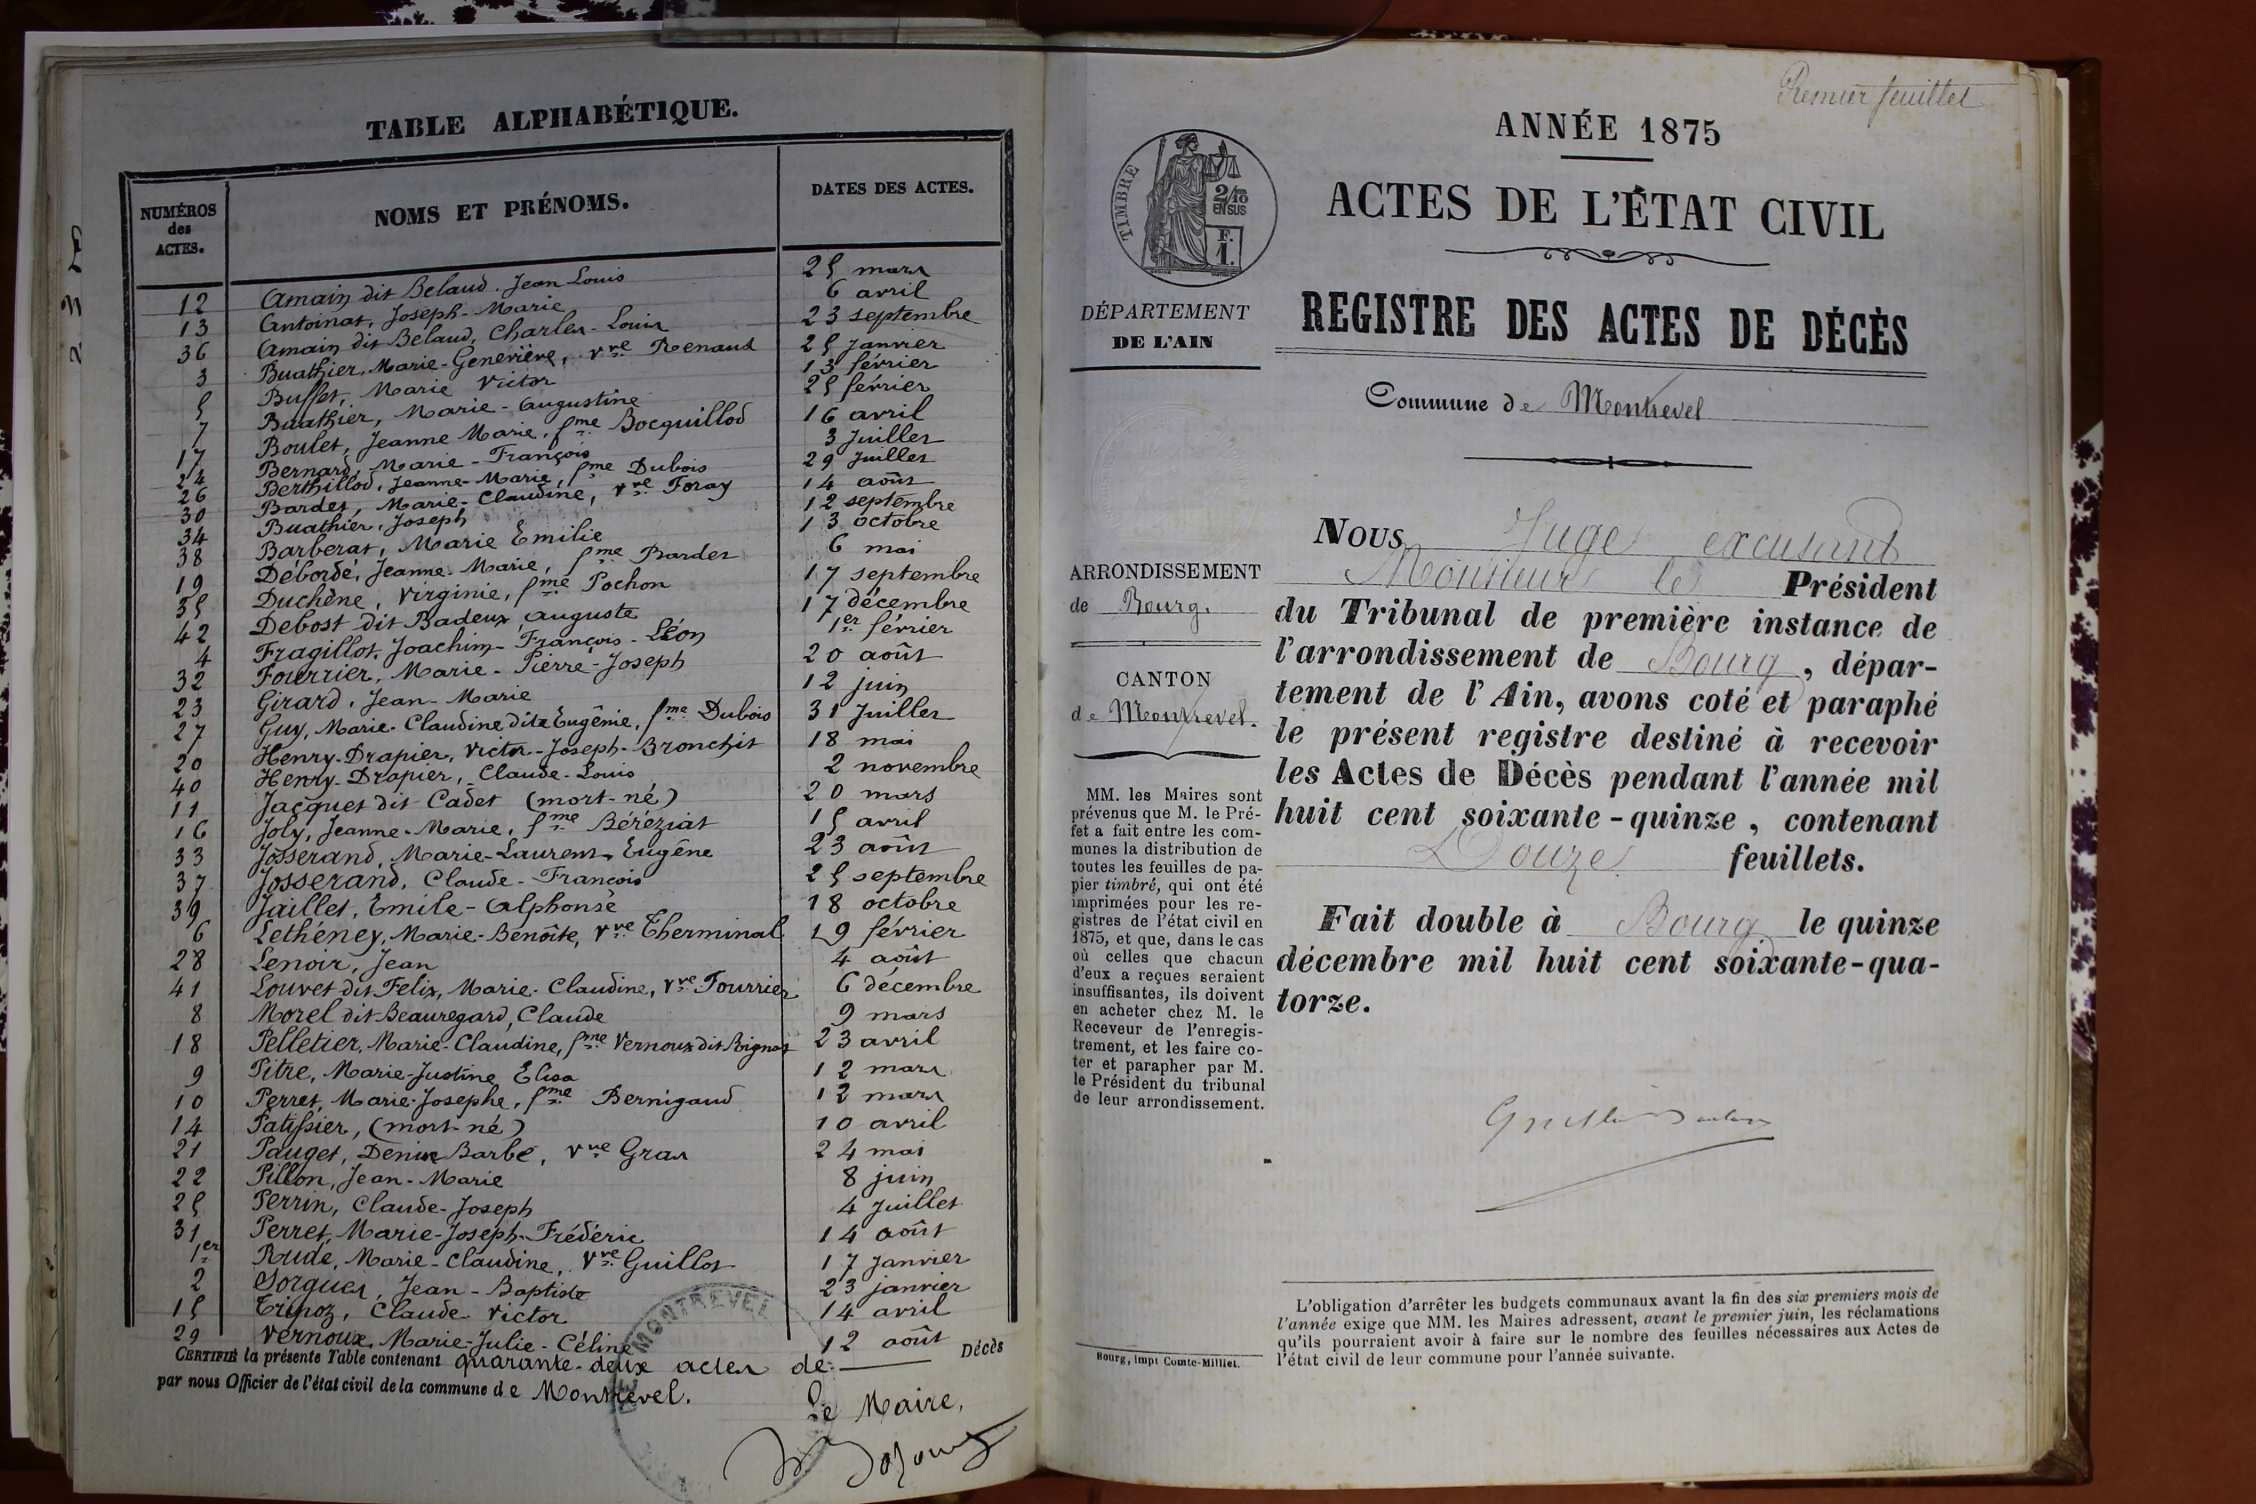 TABLE ALPHABÉTIQUE.
NUMÉROS des ACTES. NOMS ET PRÉNOMS. DATES DES ACTES.
12 Amain dit Belaud, Jean Louis 25 mars
13 Antoinat, Joseph-Marie 6 avril
36 Amain dit Belaud, Charles-Louis 23 septembre
3 Buathier, Marie-Geneviève, vve Renaud 25 Janvier
5 Buffet, Marie Victor 13 février
7 Buathier, Marie-Augustine 25 février
17 Boulet, Jeanne Marie, fme Bocquillod 16 avril
24 Bernard, Marie-François 3 Juillet
26 Berthillod, Jeanne-Marie, fme Dubois 29 Juillet
30 Bardet, Marie-Claudine, vve Foray 14 août
34 Buathier, Joseph 12 septembre
38 Barberat, Marie Emilie 13 octobre
19 Débordé, Jeanne-Marie, fme Bardet 6 mai
35 Duchêne, Virginie, fme Pochon 17 septembre
42 Debost dit Badeux, Auguste 17 décembre
4 Fragillot, Joachim-François-Léon 1er février
32 Fourrier, Marie-Pierre-Joseph 20 août
23 Girard, Jean-Marie 12 juin
27 Guy, Marie-Claudine dite Eugénie, fme Dubois 31 Juillet
20 Henry-Drapier, Victor-Joseph-Bronchit 18 mai
40 Henry-Drapier, Claude-Louis 2 novembre
11 Jacquet dit Cadet (mort-né) 20 mars
16 Joly, Jeanne-Marie, fme Béréziat 15 avril
33 Josserand, Marie-Laurent-Eugène 23 août
37 Josserand, Claude-François 25 septembre
39 Jaillet, Emile-Alphonse 18 octobre
6 Lethéney, Marie-Benoîte, vve Therminal 19 février
28 Lenoir, Jean 4 août
41 Louvet dit Felix, Marie-Claudine, vve Fourrier 6 décembre
8 Morel dit Beauregard, Claude 9 mars
18 Pelletier, Marie-Claudine, fme Vernoux dit Bignat 23 avril
9 Pitre, Marie-Justine Elisa 12 mars
10 Perret, Marie-Josephe, fme Bernigaud 12 mars
14 Patissier, (mort-né) 10 avril
21 Pauget, Denise Barbe, vve Gras 24 mai
22 Pillon, Jean-Marie 8 juin
25 Perrin, Claude-Joseph 4 Juillet
31 Perret, Marie-Joseph-Frédéric 14 août
1er Rude, Marie-Claudine, vve Guillot 17 Janvier
2 Sorgues, Jean-Baptiste 23 janvier
15 Trinoz, Claude Victor 14 avril
29 Vernoux, Marie-Julie-Céline 12 août
CERTIFIÉ la présente Table contenant quarante-deux actes de Décès
par nous Officier de l'état civil de la commune de Montrevel.
Le Maire,
MONTREVEL
Premier feuillet
ANNÉE 1875
ACTES DE L'ÉTAT CIVIL
REGISTRE DES ACTES DE DÉCÈS
Commune de Montrevel
TIMBRE
2/10 EN SUS
F. 1.
DÉPARTEMENT
DE L'AIN
ARRONDISSEMENT
de Bourg.
CANTON
de Montrevel.
MM. les Maires sont
prévenus que M. le Pré-
fet a fait entre les com-
munes la distribution de
toutes les feuilles de pa-
pier timbré, qui ont été
imprimées pour les re-
gistres de l'état civil en
1875, et que, dans le cas
où celles que chacun
d'eux a reçues seraient
insuffisantes, ils doivent
en acheter chez M. le
Receveur de l'enregis-
trement, et les faire co-
ter et parapher par M.
le Président du tribunal
de leur arrondissement.
Bourg, impr Comte-Milliet.
NOUS Juge excusant
Monsieur le Président
du Tribunal de première instance de
l'arrondissement de Bourg, dépar-
tement de l'Ain, avons coté et paraphé
le présent registre destiné à recevoir
les Actes de Décès pendant l'année mil
huit cent soixante-quinze, contenant
Douze feuillets.
Fait double à Bourg le quinze
décembre mil huit cent soixante-qua-
torze.
L'obligation d'arrêter les budgets communaux avant la fin des six premiers mois de
l'année exige que MM. les Maires adressent, avant le premier juin, les réclamations
qu'ils pourraient avoir à faire sur le nombre des feuilles nécessaires aux Actes de
l'état civil de leur commune pour l'année suivante.